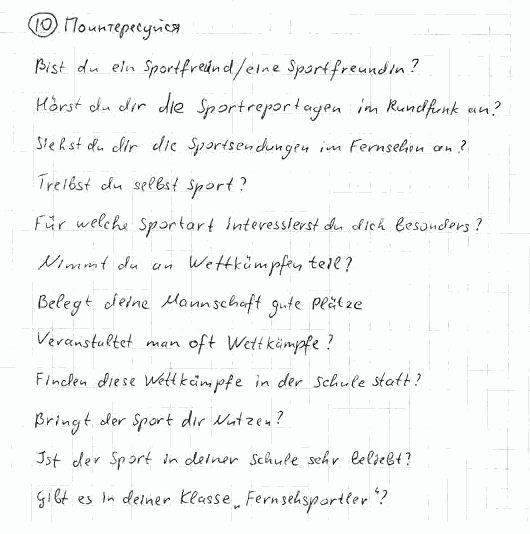 10 Поинтересуйся
Bist du ein Sportfreund/eine Sportfreundin?
Hörst du dir die Sportreportagen im Rundfunk an?
Siehst du dir die Sportsendungen im Fernsehen an?
Treibst du selbst Sport?
Für welche Sportart interessierst du dich besonders?
Nimmt du an Wettkämpfen teil?
Belegt deine Mannschaft gute Plätze
Veranstaltet man oft Wettkämpfe?
Finden diese Wettkämpfe in der Schule statt?
Bringt der Sport dir Nutzen?
Ist der Sport in deiner Schule sehr beliebt?
Gibt es in deiner Klasse „Fernsehsportler“?